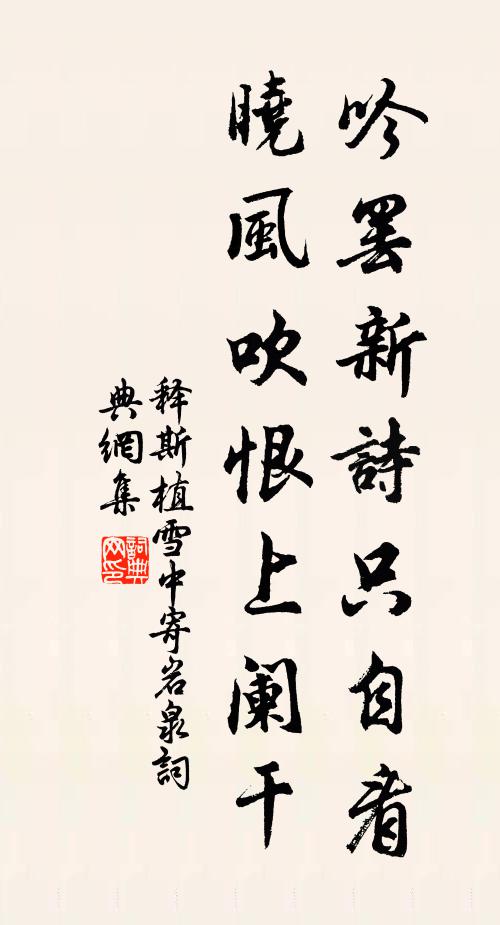 吟罢新詩只自看
曉風吹恨上阑干
释斯植雪中寄岩泉詞
典網集
詞典网印